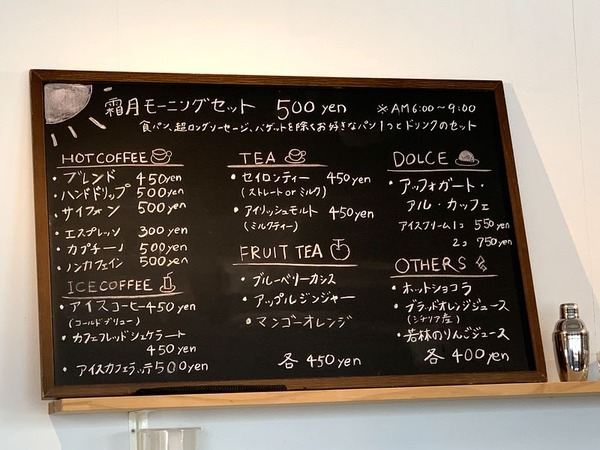 霜月モーニングセット 500 yen ※AM6:00~9:00
食パン、超ロングソーセージ、バゲットを除くお好きなパン1つとドリンクのセット
HOT COFFEE
・ブレンド 450yen
・ハンドドリップ 500yen
・サイフォン 500yen
・エスプレッソ 300 yen
・カプチーノ 500yen
・ノンカフェイン 500yen
ICE COFFEE
・アイスコーヒー 450yen
(コールドブリュー)
・カフェフレッドシェケラート
450yen
・アイスカフェラッテ 500yen
TEA
・セイロンティー 450yen
(ストレート or ミルク)
・アイリッシュモルト 450yen
(ミルクティー)
FRUIT TEA
・ブルーベリーカシス
・アップルジンジャー
・マンゴーオレンジ
各 450yen
DOLCE
・アッフォガート・
アル・カッフェ
アイスクリーム1コ 550yen
2コ 750yen
OTHERS
・ホットショコラ
・ブラッドオレンジジュース
(シチリア産)
・若林のりんごジュース
各 400yen